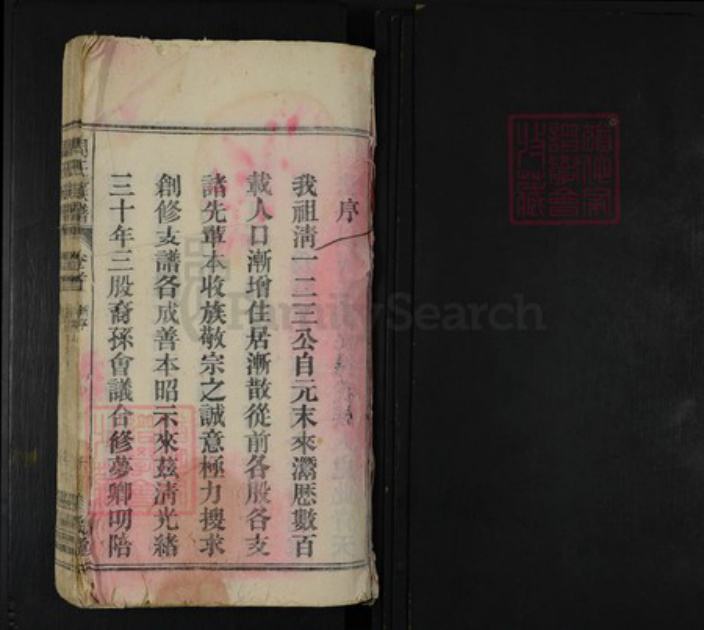 序
我祖淸一二三公自元末來灊歷數百
載人口漸增住居漸散從前各股各支
諸先輩本收族敬宗之誠意極力搜求
創修支譜各成善本昭示來兹淸光緒
三十年三股裔孫會議合修夢卿明陪
FamilySearch